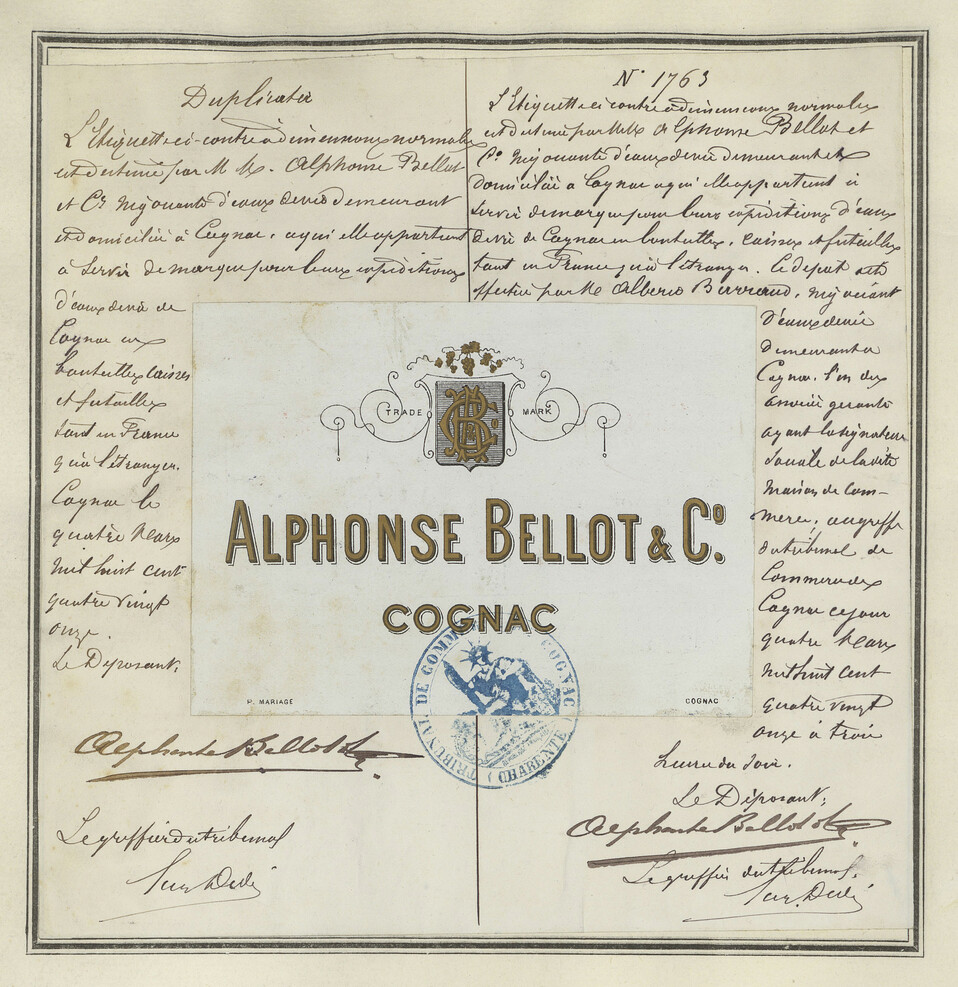 Duplicata
L'Etiquette ci-contre à dimensions normales
est destinée par M M. Alphonse Bellot
et Cie négociants d'eaux de vie demeurant
et domiciliés à Cognac, a qui elle appartient
à servir de marque pour leurs expéditions
d'eaux de vie de
Cognac en
bouteilles caisses
et futailles
tant en France
qu'à l'étranger.
Cognac le
quatre Mars
mil huit cent
quatre vingt
onze.
Le Déposant:
Alphonse Bellot & Co
Le greffier du tribunal
No 1763
L'Etiquette ci contre à dimensions normales
est destinée par MM. Alphonse Bellot et
Co négociants d'eaux de vie demeurant et
domiciliés a Cognac a qui elle appartient à
servir de marque pour leurs expéditions d'eaux
de vie de Cognac en bouteilles, caisses et futailles
tant en France qu'à l'étranger. Ce dépot est
effectué par M Alberic Barraud, négociant
d'eaux de vie
demeurant a
Cognac, l'un des
associés gerants
ayant la signature
sociale de la dite
Maison de Com-
merce, au greffe
du tribunal de
Commerce de
Cognac ce jour
quatre Mars
mil huit cent
quatre vingt
onze à trois
heures du soir.
Le Déposant:
Alphonse Bellot & Co
Le greffier du tribunal
TRADE MARK
ALPHONSE BELLOT & Co.
COGNAC
P. MARIAGE
COGNAC
TRIBUNAL DE COMM COGNAC
(CHARENTE)